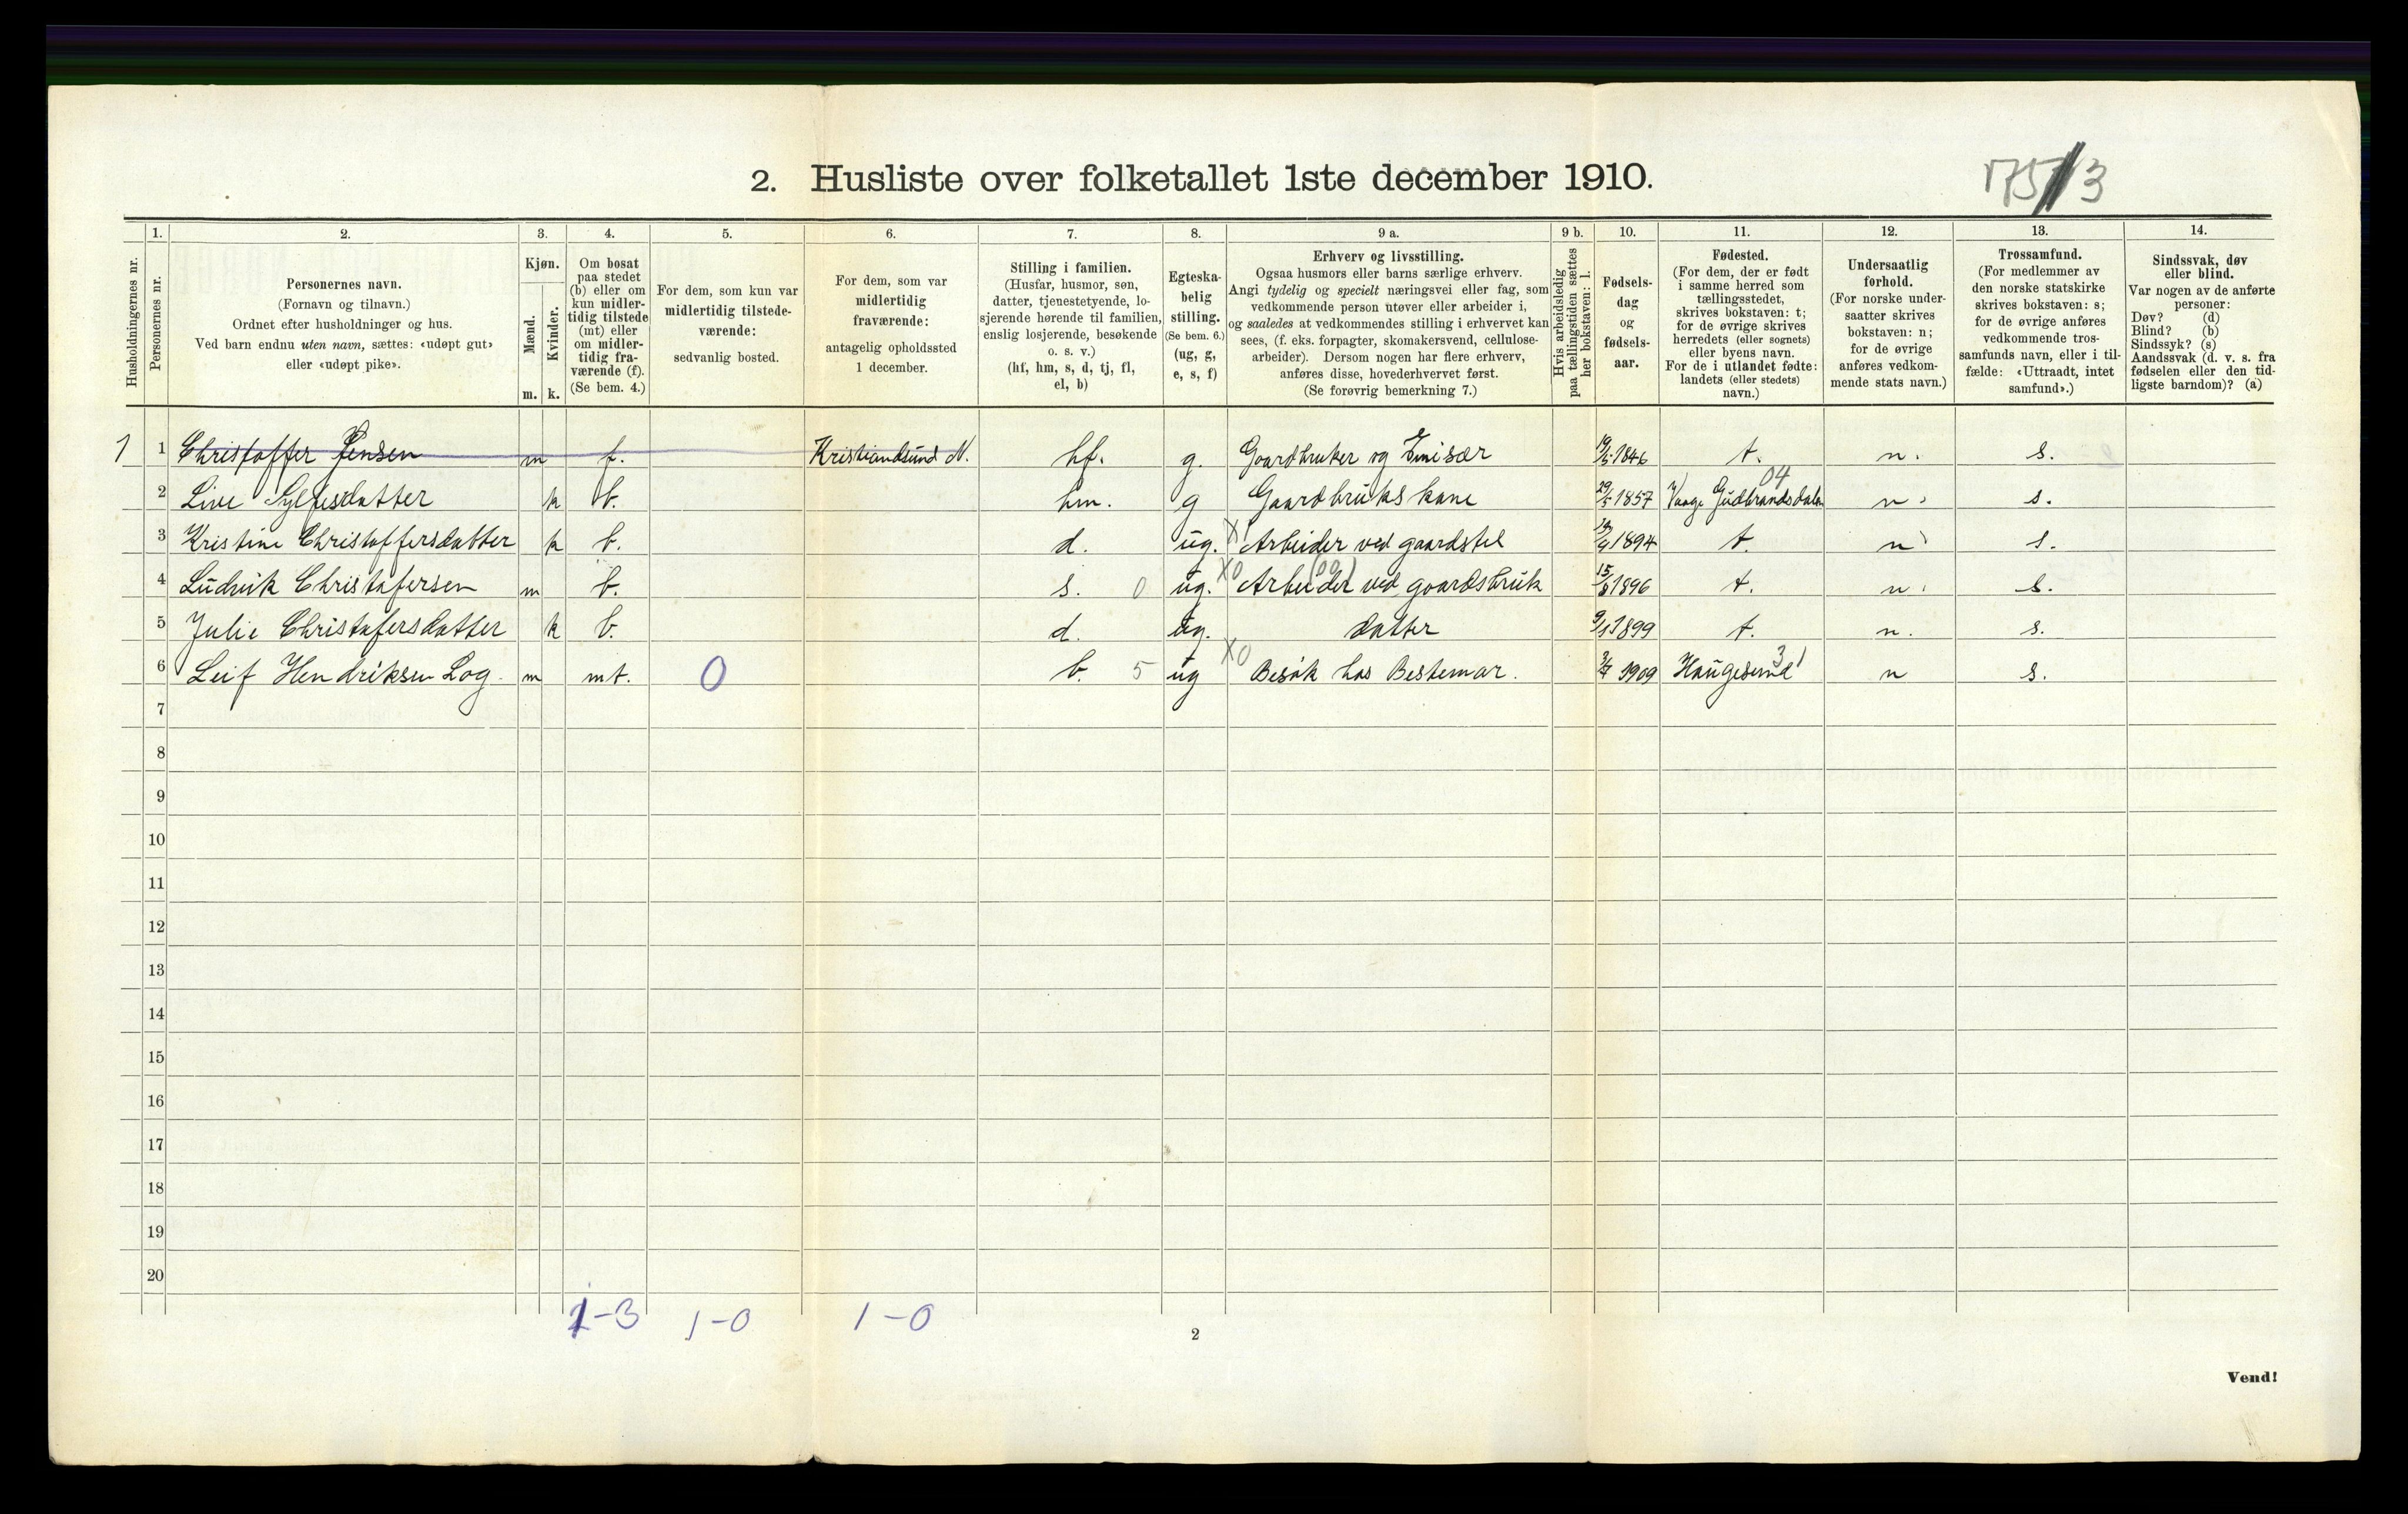 2. Husliste over folketallet 1ste december 1910.
Husholdningernes nr.
1.
Personernes nr.
2.
Personernes navn.
(Fornavn og tilnavn.)
Ordnet efter husholdninger og hus.
Ved barn endnu uten navn, sættes: «udøpt gut»
eller «udøpt pike».
3.
Kjøn.
Mænd.
Kvinder.
m. k.
4.
Om bosat
paa stedet
(b) eller om
kun midler-
tidig tilstede
(mt) eller
om midler-
tidig fra-
værende (f).
(Se bem. 4.)
5.
For dem, som kun var
midlertidig tilstede-
værende:
sedvanlig bosted.
6.
For dem, som var
midlertidig
fraværende:
antagelig opholdssted
1 december.
7.
Stilling i familien.
(Husfar, husmor, søn,
datter, tjenestetyende, lo-
sjerende hørende til familien,
enslig losjerende, besøkende
o. s. v.)
(hf, hm, s, d, tj, fl,
el, b)
8.
Egteska-
belig
stilling.
(Se bem. 6.)
(ug, g,
e, s, f)
9 a.
Erhverv og livsstilling.
Ogsaa husmors eller barns særlige erhverv.
Angi tydelig og specielt næringsvei eller fag, som
vedkommende person utøver eller arbeider i,
og saaledes at vedkommendes stilling i erhvervet kan
sees, (f. eks. forpagter, skomakersvend, cellulose-
arbeider). Dersom nogen har flere erhverv,
anføres disse, hovederhvervet først.
(Se forøvrig bemerkning 7.)
9 b.
Hvis arbeidsledig
paa tællingstiden sættes
her bokstaven: l.
10.
Fødsels-
dag
og
fødsels-
aar.
11.
Fødested.
(For dem, der er født
i samme herred som
tællingsstedet,
skrives bokstaven: t;
for de øvrige skrives
herredets (eller sognets)
eller byens navn.
For de i utlandet fødte:
landets (eller stedets)
navn.)
12.
Undersaatlig
forhold.
(For norske under-
saatter skrives
bokstaven: n;
for de øvrige
anføres vedkom-
mende stats navn.)
13.
Trossamfund.
(For medlemmer av
den norske statskirke
skrives bokstaven: s;
for de øvrige anføres
vedkommende tros-
samfunds navn, eller i til-
fælde: «Uttraadt, intet
samfund».)
14.
Sindssvak, døv
eller blind.
Var nogen av de anførte
personer:
Døv? (d)
Blind? (b)
Sindssyk? (s)
Aandssvak (d. v. s. fra
fødselen eller den tid-
ligste barndom)? (a)
1 1 Christoffer Jensen m f. Kristiandsund N. hf. g. Gaardbruker og Emisær 1846 t. n. s.
04
2 Live Sylfesdatter k b. hm. g Gaardbruks kone 29/5 1857 Vaage Gudbrandsdalen n. s.
3 Kristine Christoffersdatter k b. d. ug. Arbeider ved gaardstel 1894 t. n s.
4 Ludvik Christofersen m b. s. 0 ug. X0 Arbeider ved gaardsbruk 15/8 1896 t. n. s.
5 Julie Christofersdatter k b. d. ug. datter 9/1 1899 t. n. s.
6 Leif Hendriksen Log m mt. 0 b. 5 ug X0 Besøk hos Bestemor. 1909 Haugesund n s.
7
8
9
10
11
12
13
14
15
16
17
18
19
20
1-3 1-0 1-0
2
Vend!